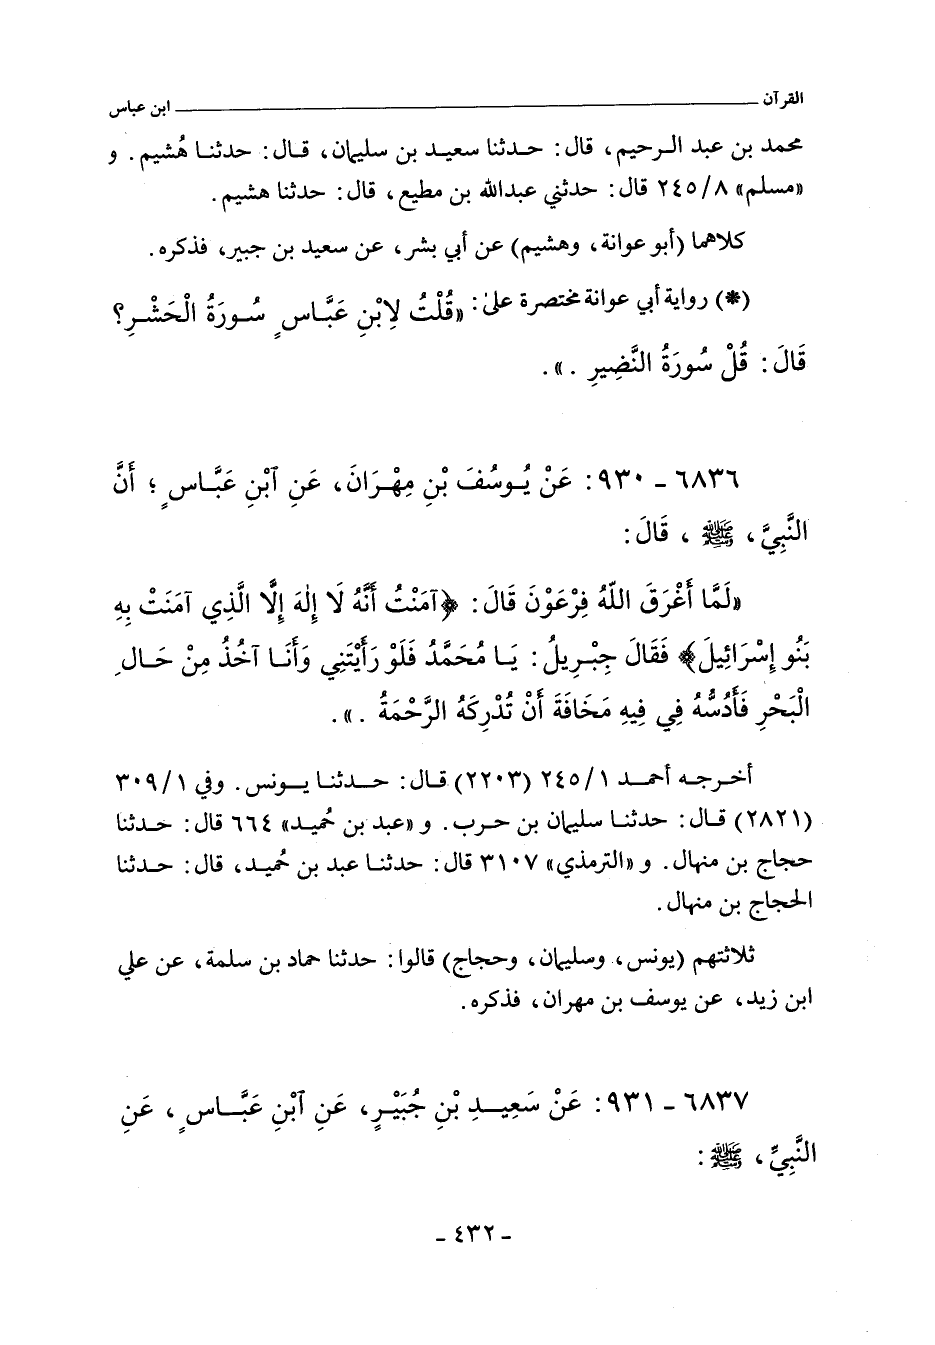 القرآن ــــــــــــــــــــــــــــــــــــــــــــــــ ابن عباس
محمد بن عبد الرحيم، قال: حدثنا سعيد بن سليمان، قال: حدثنا هُشيم. و
«مسلم» ٢٤٥/٨ قال: حدثني عبدالله بن مطيع، قال: حدثنا هشيم.
كلاهما (أبو عوانة، وهشيم) عن أبي بشر، عن سعيد بن جبير، فذكره.
(*) رواية أبي عوانة مختصرة على: «قُلْتُ لِابْنِ عَبَّاسٍ سُورَةُ الْحَشْرِ؟
قَالَ: قُلْ سُورَةُ النَّضِيرِ .».
٦٨٣٦ - ٩٣٠: عَنْ يُوسُفَ بْنِ مِهْرَانَ، عَنِ آبْنِ عَبَّاسٍ ؛ أَنَّ
النَّبِيَّ، ﷺ ، قَالَ:
«لَمَّا أَغْرَقَ اللّهُ فِرْعَوْنَ قَالَ: ﴿آمَنْتُ أَنَّهُ لَا إِلٰهَ إِلَّا الَّذِي آمَنَتْ بِهِ
بَنُو إِسْرَائِيلَ﴾ فَقَالَ جِبْرِيلُ: يَا مُحَمَّدُ فَلَوْ رَأَيْتَنِي وَأَنَا آخُذُ مِنْ حَالِ
الْبَحْرِ فَأَدُسُّهُ فِي فِيهِ مَخَافَةَ أَنْ تُدْرِكَهُ الرَّحْمَةُ .».
أخرجه أحمد ٢٤٥/١ (٢٢٠٣) قال: حدثنا يونس. وفي ٣٠٩/١
(٢٨٢١) قال: حدثنا سليمان بن حرب. و «عبد بن حُميد» ٦٦٤ قال: حدثنا
حجاج بن منهال. و «الترمذي» ٣١٠٧ قال: حدثنا عبد بن حُميد، قال: حدثنا
الحجاج بن منهال.
ثلاثتهم (يونس، وسليمان، وحجاج) قالوا: حدثنا حماد بن سلمة، عن علي
ابن زيد، عن يوسف بن مهران، فذكره.
٦٨٣٧ - ٩٣١: عَنْ سَعِيدِ بْنِ جُبَيْرٍ، عَنِ آبْنِ عَبَّاسٍ ، عَنِ
النَّبِيِّ، ﷺ :
- ٤٣٢ -